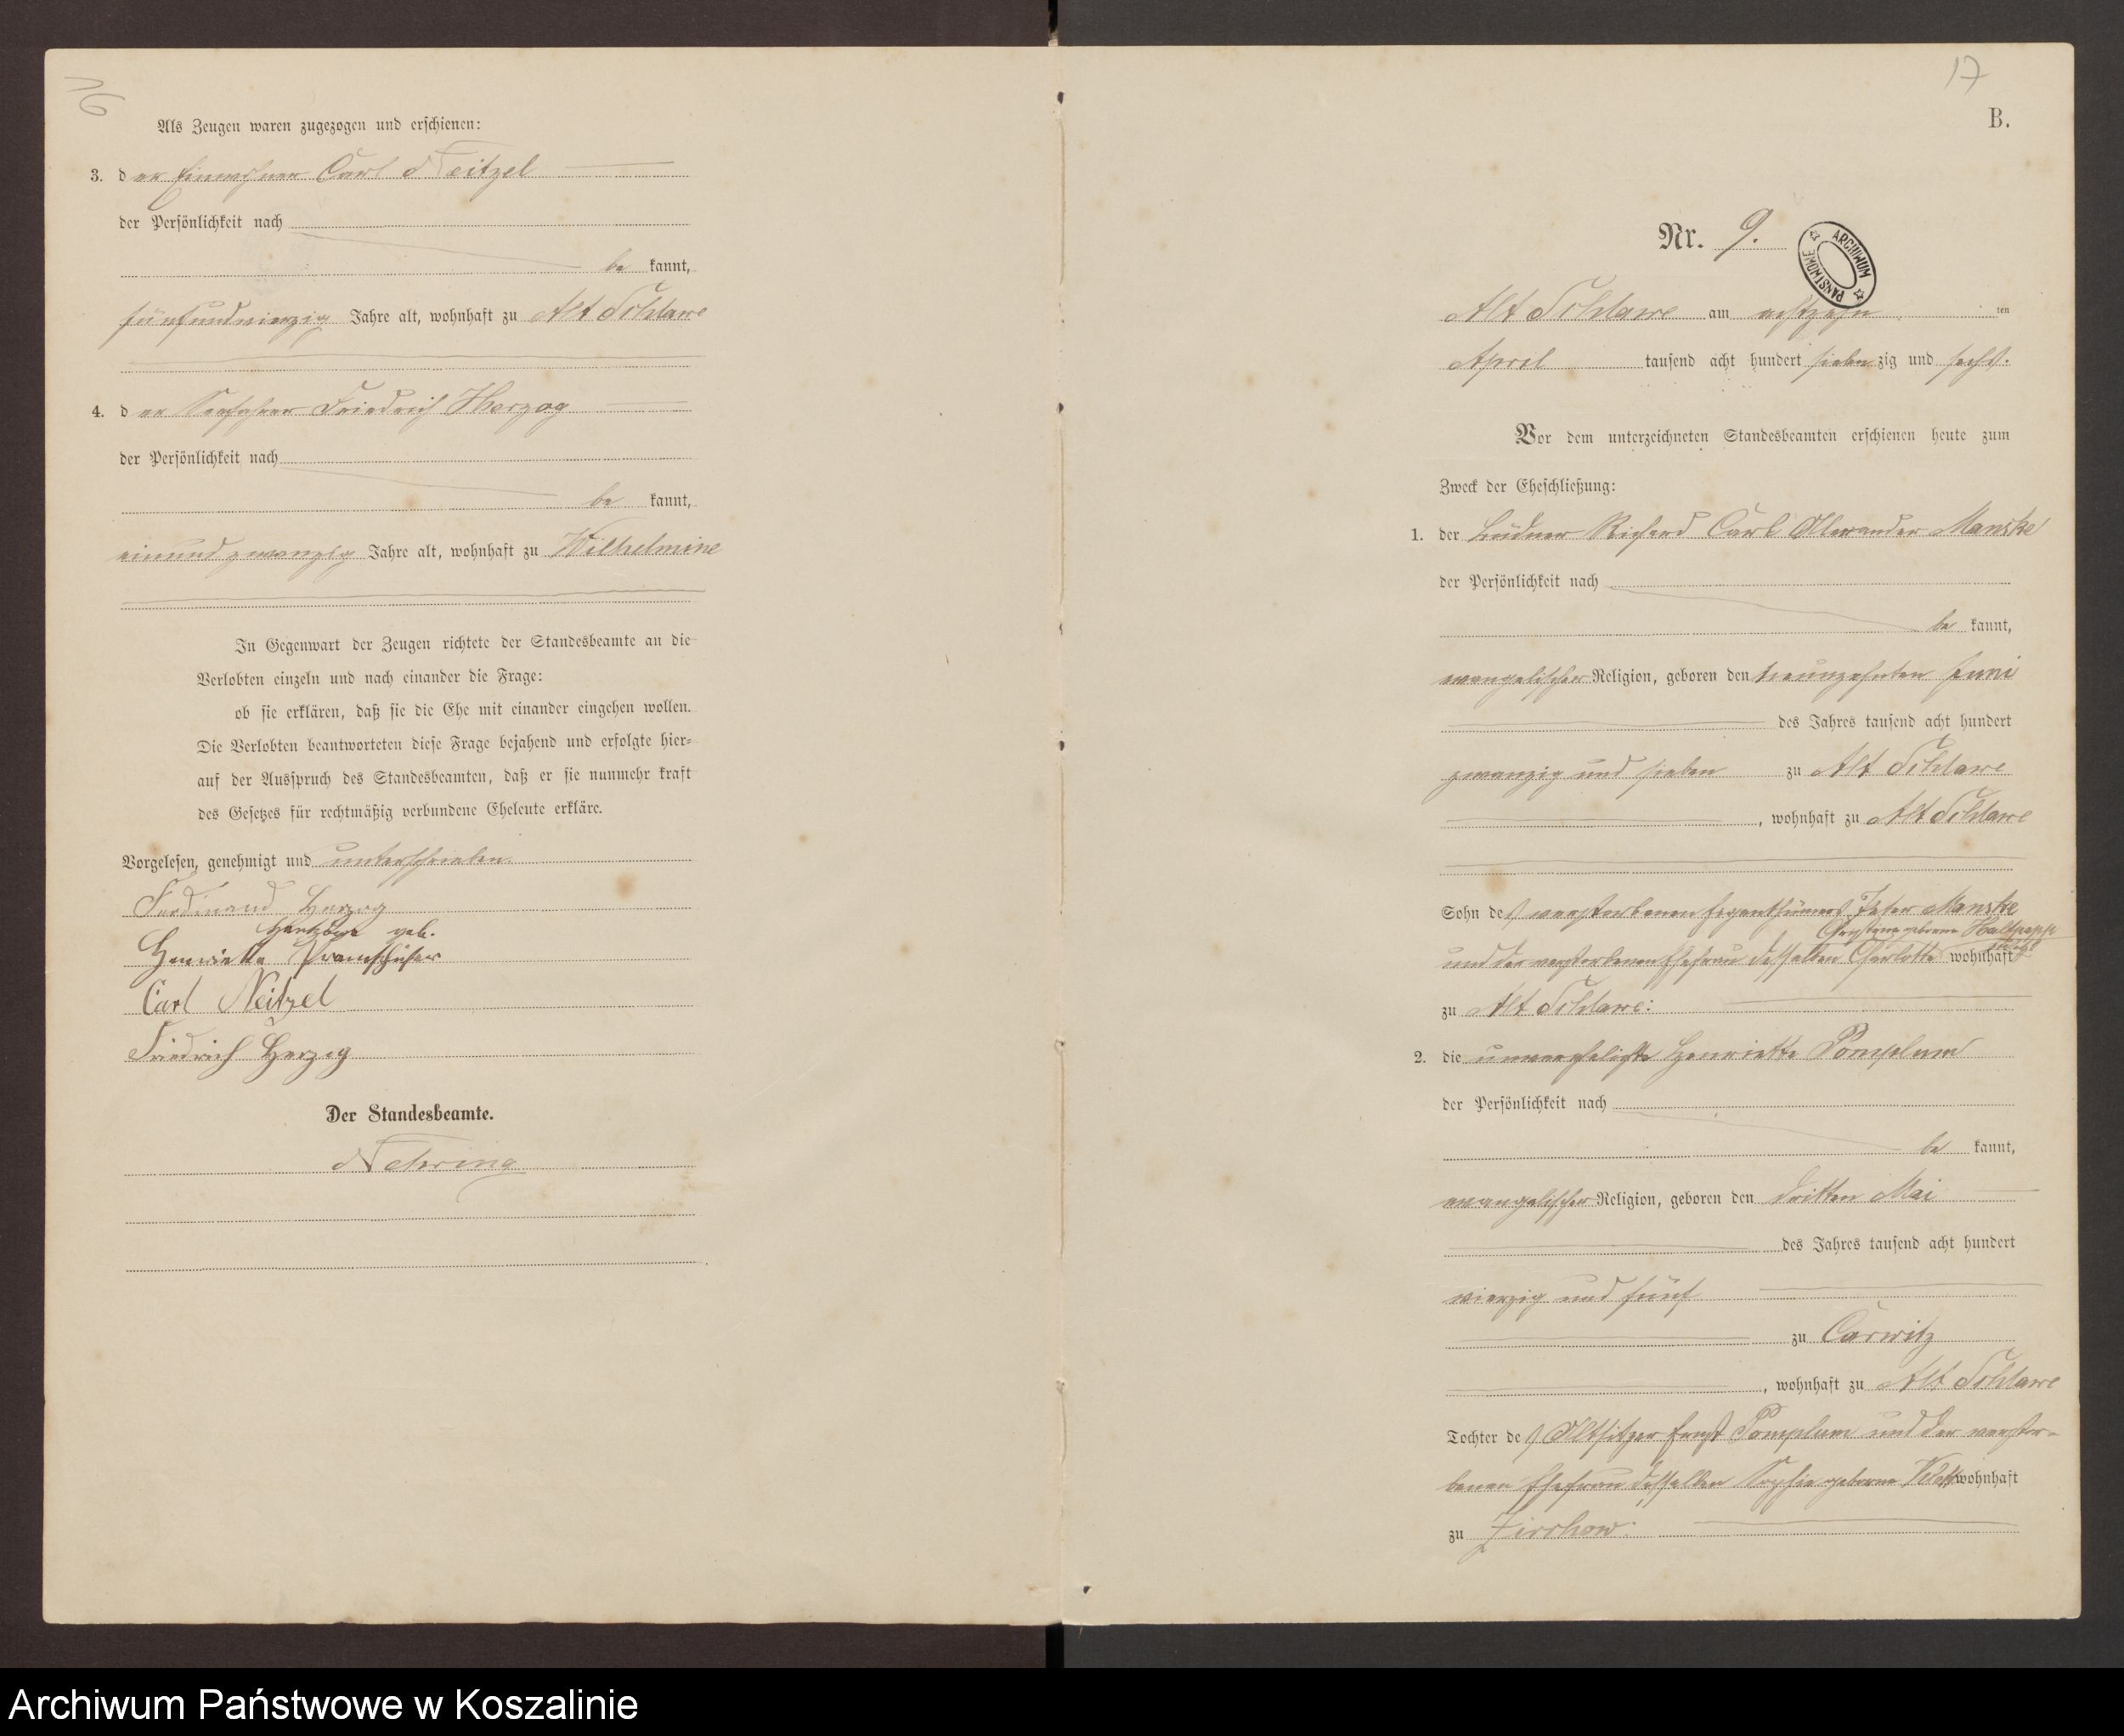 16
Als Zeugen waren zugezogen und erschienen:
3. der Einwohner Carl Neitzel
der Persönlichkeit nach
be kannt,
fünfundvierzig Jahre alt, wohnhaft zu Alt Schlawe
4. der Seefahrer Friedrich Herzog
der Persönlichkeit nach
be kannt,
einundzwanzig Jahre alt, wohnhaft zu Wilhelmine
In Gegenwart der Zeugen richtete der Standesbeamte an die
Verlobten einzeln und nach einander die Frage:
ob sie erklären, daß sie die Ehe mit einander eingehen wollen.
Die Verlobten beantworteten diese Frage bejahend und erfolgte hier-
auf der Ausspruch des Standesbeamten, daß er sie nunmehr kraft
des Gesetzes für rechtmäßig verbundene Eheleute erkläre.
Vorgelesen, genehmigt und unterschrieben
Ferdinand Herzog
geb.
Henriette
Carl Neitzel
Friedrich Herzog
Der Standesbeamte.
Nehring
17
B.
Nr. 9.
ARCHIWUM PAŃSTWOWE
Alt Schlawe am achtzehn ten
April tausend acht hundert siebenzig und sechs.
Vor dem unterzeichneten Standesbeamten erschienen heute zum
Zweck der Eheschließung:
1. der Büdner Richard Carl Alexander Manske
der Persönlichkeit nach
be kannt,
evangelischer Religion, geboren den neunzehnten Juni
des Jahres tausend acht hundert
zwanzig und sieben zu Alt Schlawe
, wohnhaft zu Alt Schlawe
Sohn des verstorbenen Eigenthümers Peter Manske
geborene
und der verstorbenen Ehefrau desselben Charlotte wohnhaft
zu Alt Schlawe:
2. die unverehelichte Henriette Pomplum
der Persönlichkeit nach
be kannt,
evangelischer Religion, geboren den dritten Mai
des Jahres tausend acht hundert
vierzig und fünf
zu Carwitz
, wohnhaft zu Alt Schlawe
Tochter des Altsitzer Ernst Pomplum und der verstor-
benen Ehefrau desselben Sophie geborene wohnhaft
zu Zirchow.
Archiwum Państwowe w Koszalinie